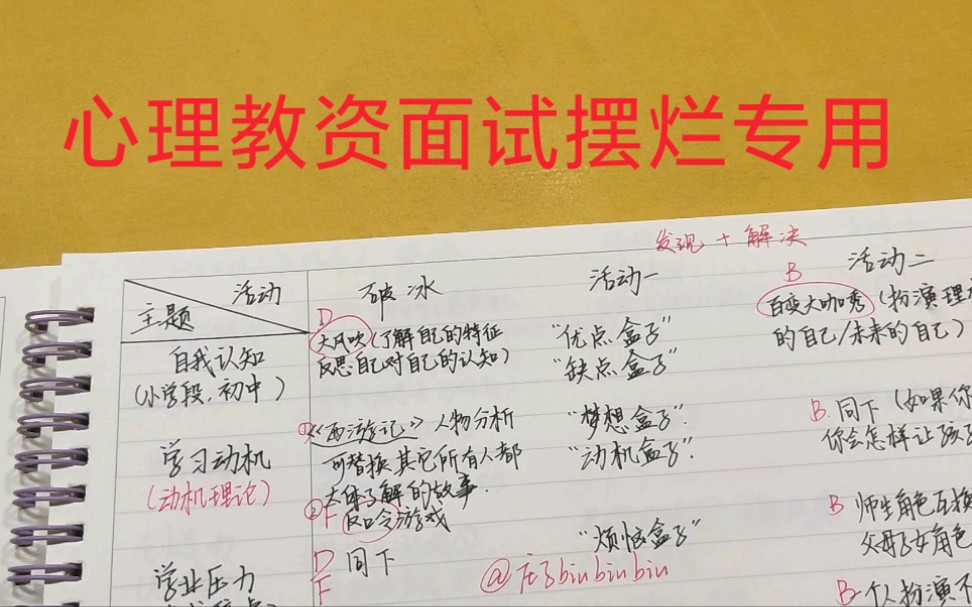 心理教资面试摆烂专用
发现 + 解决
活动
主题
破冰
活动一
B 活动二
自我认知
(小学段、初中)
D
大风吹(了解自己的特征
反思自己对自己的认知)
"优点盒子"
"缺点盒子"
百变大咖秀(扮演理
的自己/未来的自己)
学习动机
(动机理论)
①《西游记》人物分析
可替换其它所有人都
大体了解的故事.
② F 反口令游戏
"梦想盒子"
"动机盒子"
B 同下(如果你
你会怎样让孩子
学业压力
D 同下
F
"烦恼盒子"
B 师生角色互换
父母子女角色
B 个人扮演不
@左了biubiubiu